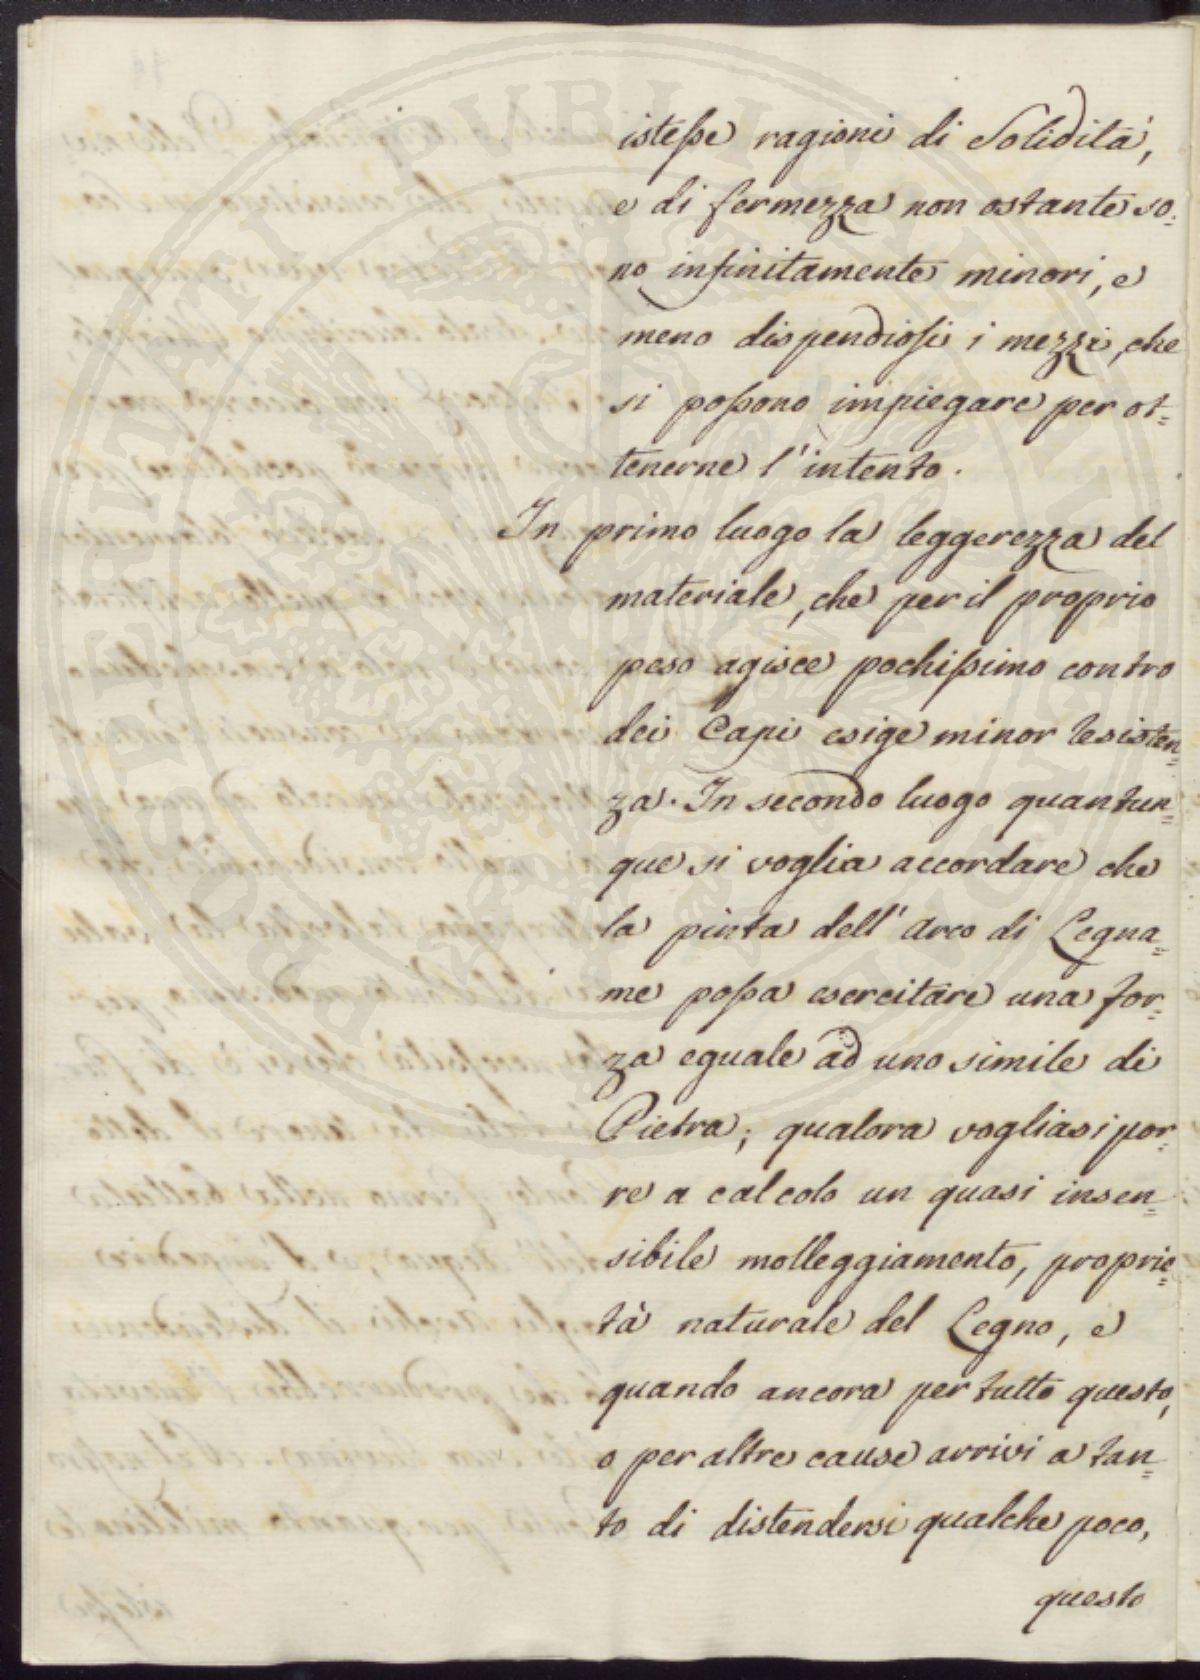 istesse ragioni di Solidità,
e di fermezza non ostante so=
no infinitamente minori, e
meno dispendiosi i mezzi, che
si possono impiegare per ot=
tenerne l'intento.
In primo luogo la leggerezza del
materiale, che per il proprio
peso agisce pochissimo contro
dei Capi esige minor resisten=
za. In secondo luogo quantun=
que si voglia accordare che
la pinta dell' Arco di Legna=
me possa esercitare una for=
za eguale ad uno simile di
Pietra; qualora vogliasi por=
re a calcolo un quasi insen=
sibile molleggiamento, proprie=
tà naturale del Legno, e
quando ancora per tutto questo,
o per altre cause arrivi a tan=
to di distendersi qualche poco,
questo